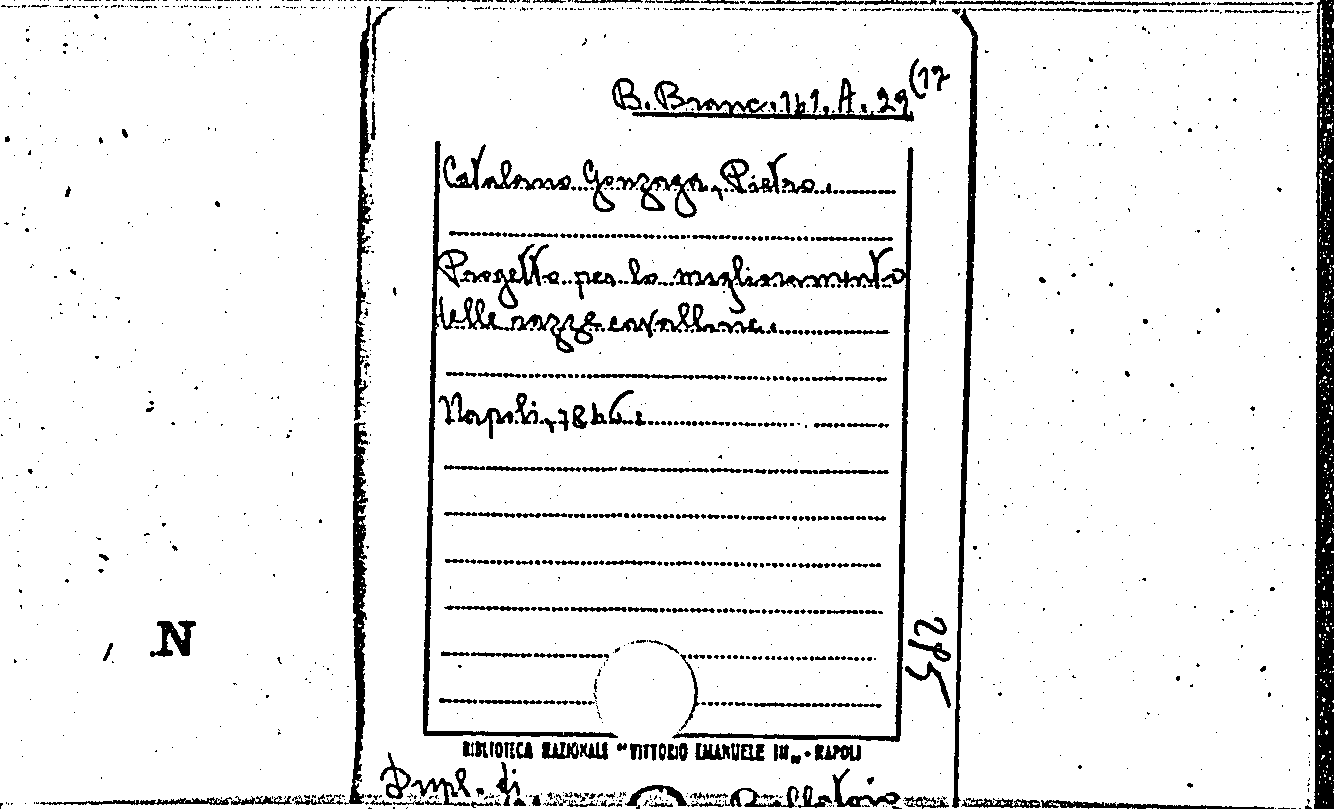 B. Branc. 161. A. 29 (17
Catalano Gonzaga, Pietro.
Progetto per lo miglioramento
delle razze cavalline.
Napoli, 1846.
N
BIBLIOTECA NAZIONALE "VITTORIO EMANUELE III" - NAPOLI
Dupl. di